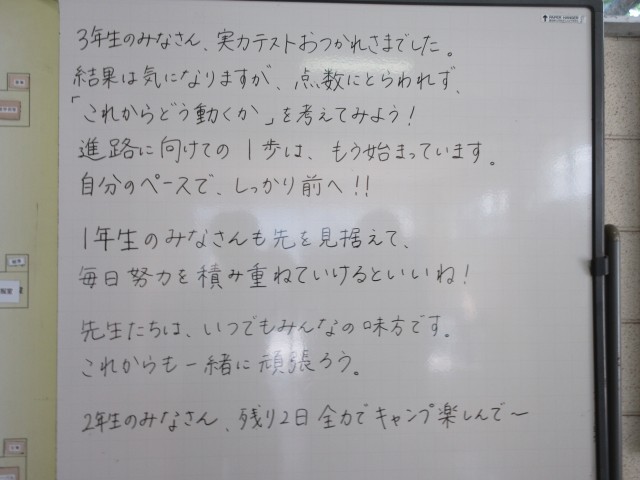 3年生のみなさん、実力テストおつかれさまでした。
結果は気になりますが、点数にとらわれず、
「これからどう動くか」を考えてみよう!
進路に向けての1歩は、もう始まっています。
自分のペースで、しっかり前へ!!
1年生のみなさんも先を見据えて、
毎日努力を積み重ねていけるといいね!
先生たちは、いつでもみんなの味方です。
これからも一緒に頑張ろう。
2年生のみなさん、残り2日全力でキャンプ楽しんで〜